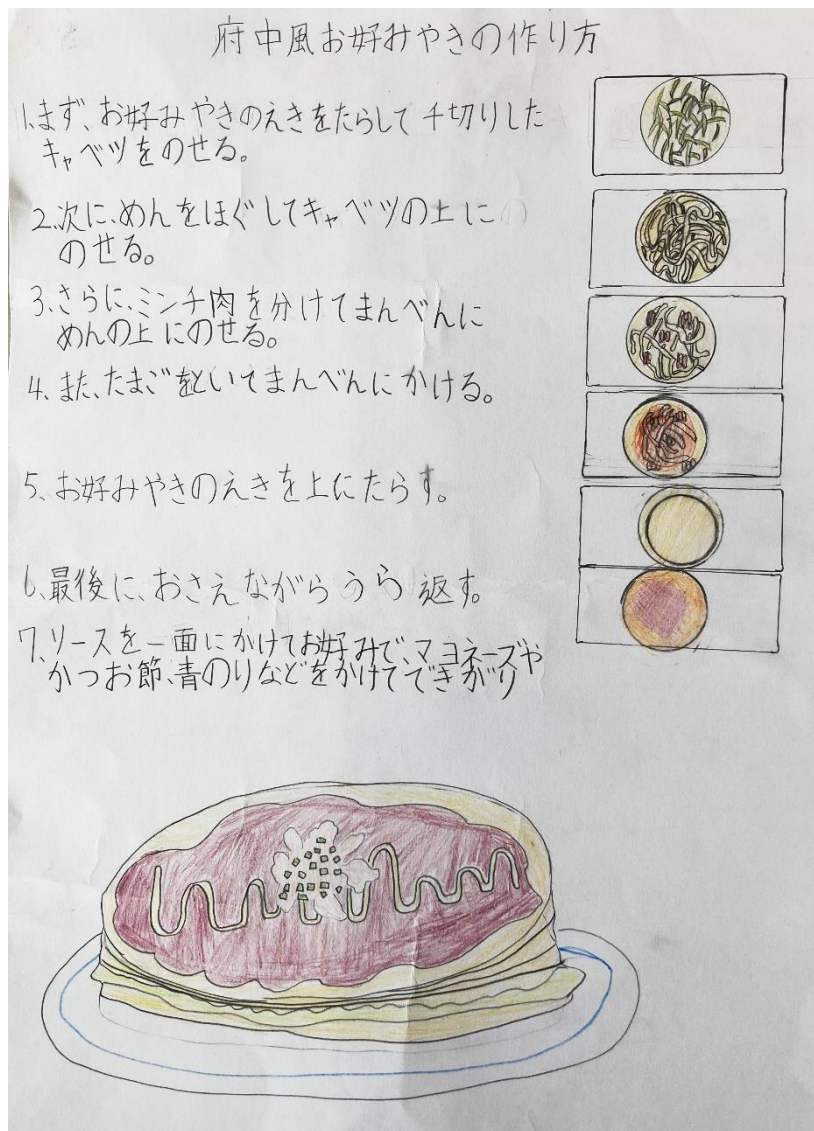 府中風お好みやきの作り方
1.まず、お好みやきのえきをたらして千切りした
キャベツをのせる。
2.次に、めんをほぐしてキャベツの上に
のせる。
3.さらに、ミンチ肉を分けてまんべんに
めんの上にのせる。
4.また、たまごをといてまんべんにかける。
5、お好みやきのえきを上にたらす。
6、最後に、おさえながらうら返す。
7、ソースを一面にかけてお好みで、マヨネーズや
かつお節、青のりなどをかけてできがり